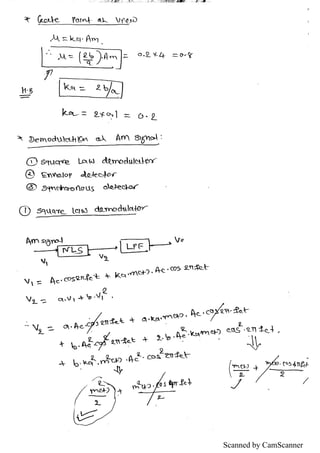 * Gate Point at View
μ = ka. Am.
∴ μ = (2b/a).Am = 0.2×4 = 0.8
N.B ka = 2b/a
ka = 2×0.1 = 0.2
* Demodulation at Am signal:
① Square Law demodulator
② Envelop detector
③ Synchronous detector
① Square law demodulator
Am signal → NLS → LPF → Vo
V1 V2
V1 = Ac.cos2πfct + ka.m(t).Ac.cos2πfct
V2 = a.V1 + b.V1².
∴ V2 = a.Ac cos2πfct + a.ka.m(t).Ac.cos2πfct
+ b.Ac² cos² 2πfct + 2.b.Ac² ka m(t) cos² 2πfct.
+ b.ka².m²(t).Ac².cos²2πfct
m²(t)/2 + m²(t).cos4πfct/2
m(t)/2 + m(t).cos4πfct/2
Scanned by CamScanner